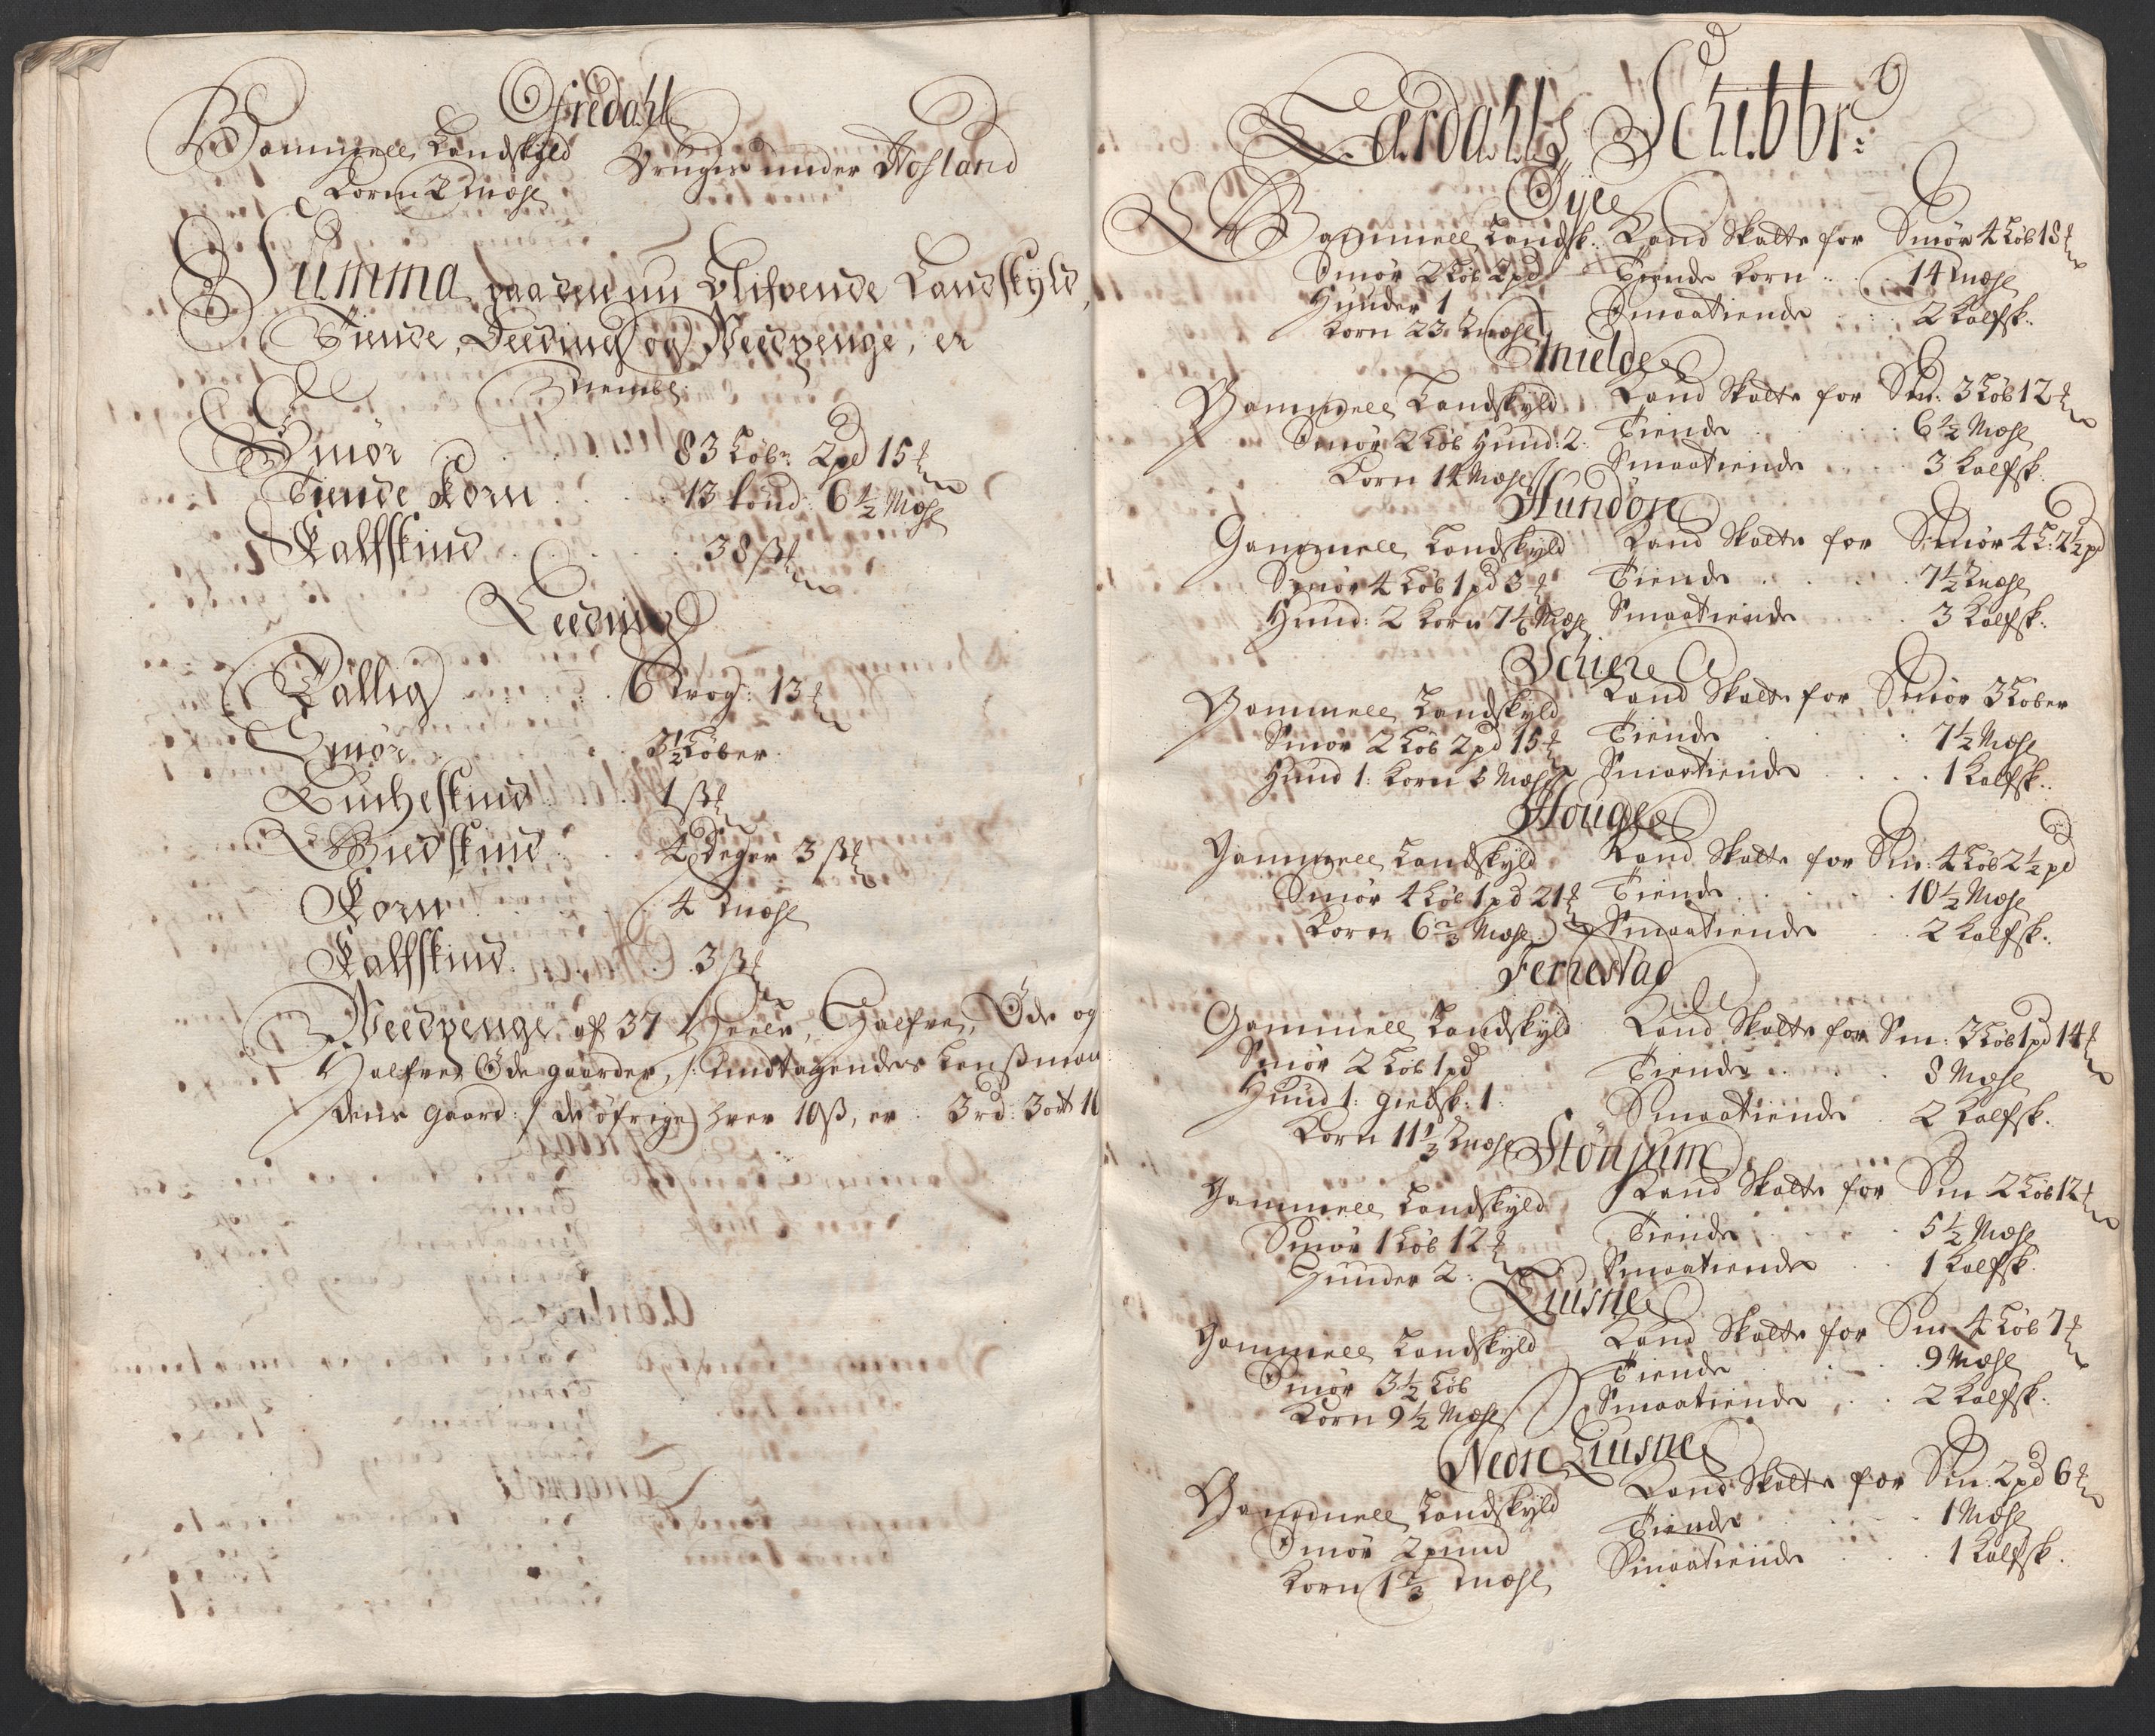 Ofredahl
Gammell Landskyld Bruges under Hofland
Korn 2 mæhl
Summa paa den nu blifvende Landskyld,
Tiende, Leeding og Weedpenge, er
Nembl:
Smør 83 Løb: 2pd 15 ℔
Tiende Korn 13 tønd: 6½ Mæhl
Kalfskind 38 st
Leeding
Tallig 6 trog: 13 ℔
Smør 3½ Løber
Bucheskind 1 st
Giedskind 4 deger 3 st
Korn 4 mæhl
Kalfskind 3 st
Weedpenge af 37 Heele, Halfve, Øde og
Halfve Øde gaarder, /: Undtagendes Lenßman
dens gaard: / de øfrige hver 10 ß, er 3 rd: 3 ort 10
Lærdahls Schibbr:
Øÿe
Gammell Landsk: Land Skatte for Smør 4 Løb 18 ℔
Smør 2 Løb 2 pd Tiende Korn 14 mæhl
Hunder 1 Smaatiende 2 Kalfsk:
Korn 23 mæhl
Mielde
Gammell Landskyld Land Skatte for Sm: 3 Løb 12 ℔
Smør 2 Løb Hund: 2 Tiende 6½ Mæhl
Korn 14 Mæhl Smaatiende 3 Kalfsk:
Hundøre
Gammell Landskyld Land Skatte for Smør 4 L: 2½ pd
Smør 4 Løb 1 pd 3 ℔ Tiende 7½ mæhl
Hund: 2 Korn 7 1/6 Mæhl Smaatiende 3 Kalfsk:
Schiere
Gammell Landskyld Land Skatte for Smør 3 Løber
Smør 2 Løb 2 pd 15 ℔ Tiende 7½ Mæhl
Hund 1: Korn 8 Mæhl Smaatiende 1 Kalfsk:
Houge
Gammell Landskyld Land Skatte for Sm: 4 Løb 2½ pd
Smør 4 Løb 1 pd 21 ℔ Tiende 10½ Mæhl
Korn 6⅔ Mæhl Smaatiende 2 Kalfsk:
Ferrestad
Gammell Landskyld Land Skatte for Sm: 3 Løb 1 pd 14 ℔
Smør 2 Løb 1 pd Tiende 8 Mæhl
Hund 1: giedsk: 1 Smaatiende 2 Kalfsk:
Korn 11⅓ mæhl
Stønjum
Gammell Landskyld Land Skatte for Sm 2 Løb 12 ℔
Smør 1 Løb 12 ℔ Tiende 5½ Mæhl
Hunder 2: Smaatiende 1 Kalfsk:
Liusne
Gammell Landskyld Land Skatte for Sm 4 Løb 7 ℔
Smør 3½ Løb Tiende 9 Mæhl
Korn 9½ Mæhl Smaatiende 2 Kalfsk:
Nedre Liusne
Gammell Landskyld Land Skatte for Sm: 2 pd 6 ℔
Smør 2 pund Tiende 1 Mæhl
Korn 1⅔ mæhl Smaatiende 1 Kalfsk: